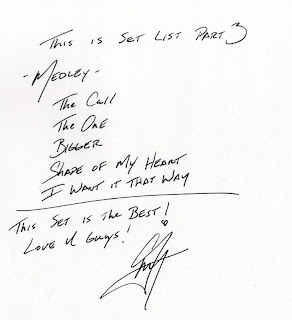 This is Set List Part 3
- Medley -
The Call
The One
Bigger
Shape of My Heart
I Want it That Way
This Set is the Best!
Love U Guys!